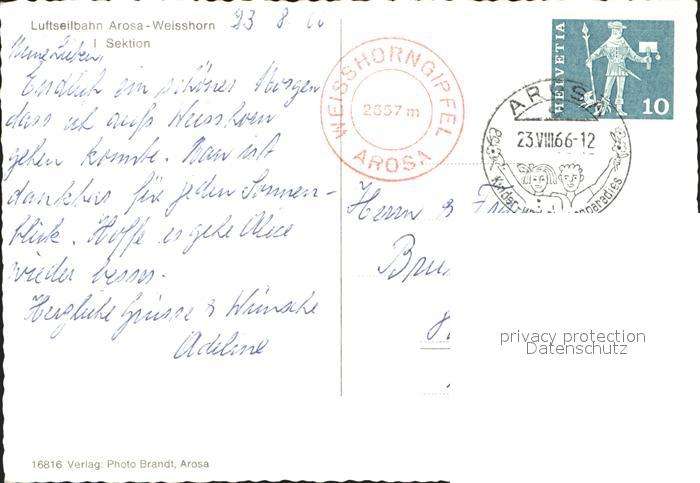 Luftseilbahn Arosa-Weisshorn
I Sektion
23 8 66
Meine Lieben,
Endlich ein schöner Morgen
dass ich aufs Weisshorn
gehen konnte. Man ist
dankbar für jeden Sonnen-
blick. Hoffe es gehe Alice
wieder besser.
Herzliche Grüsse & Wünsche
Adeline
16816 Verlag: Photo Brandt, Arosa
WEISSHORNGIPFEL
2657 m
AROSA
HELVETIA
10
AROSA
23.VIII66-12
Kinder-
paradies
Herrn & Frau
Bru
privacy protection
Datenschutz